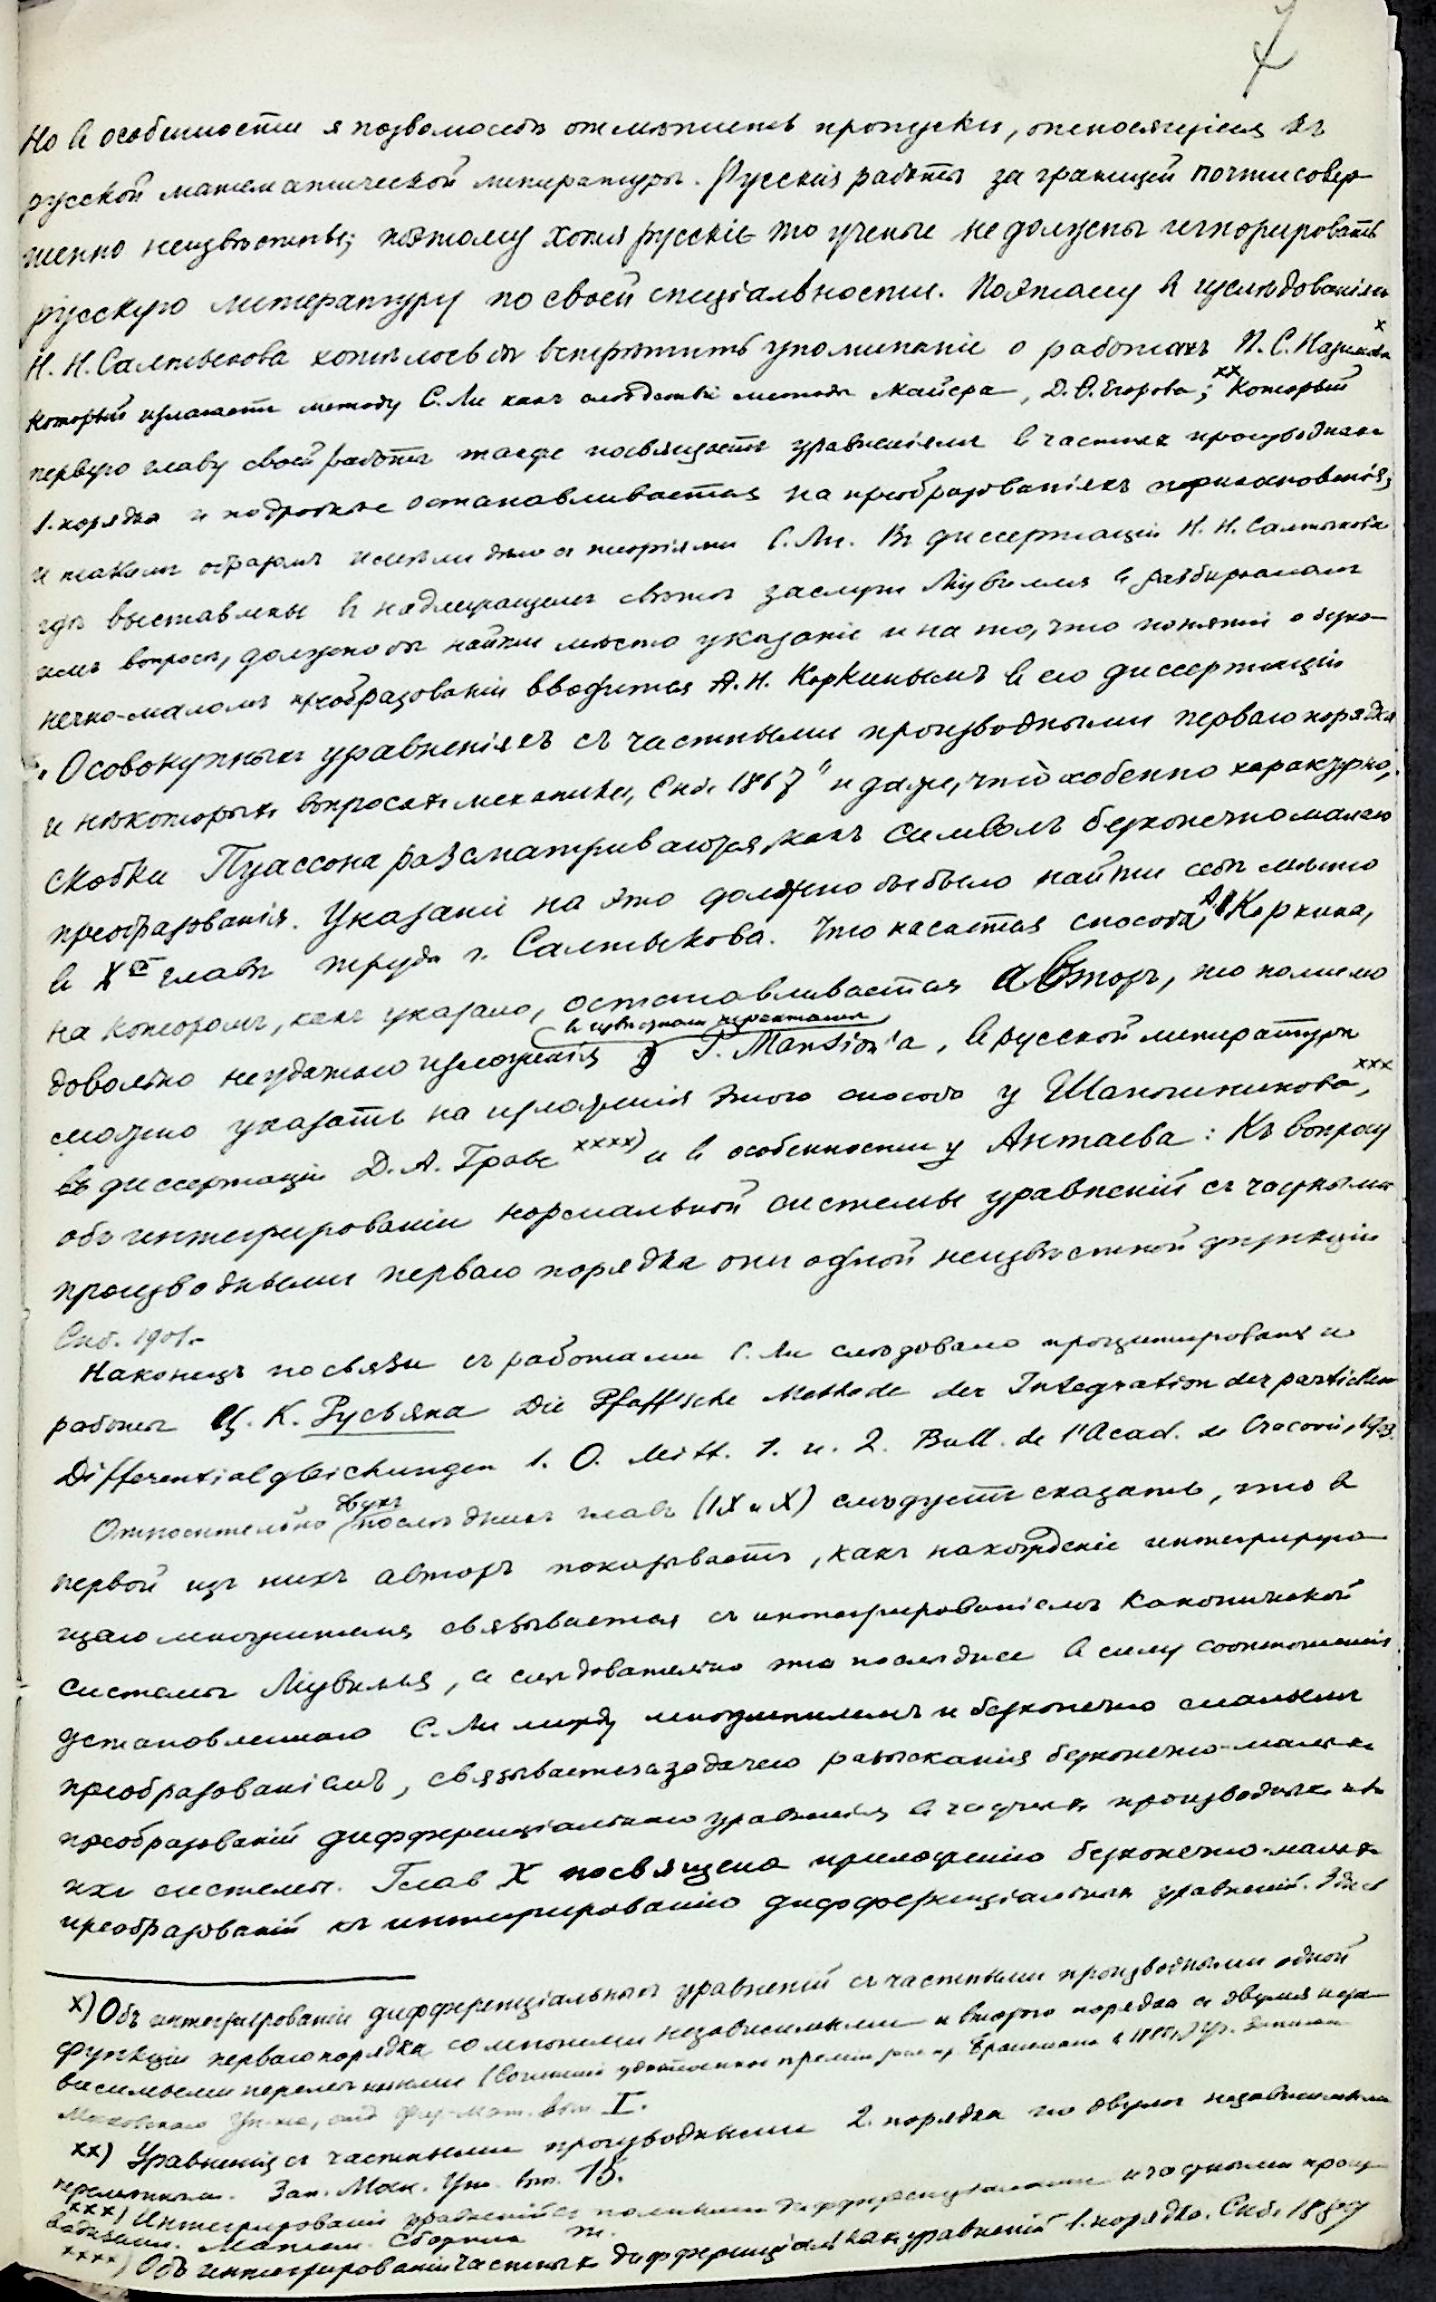 7
Но въ особенности я позволю себѣ отмѣтить пропуски, относящіеся къ
русской математической литературы. Русскія работы за границей почти совер-
шенно неизвѣстны; поэтому хотя русскіе то ученые не должны игнорировать
русскую литературу по своей спеціальности. Поэтому въ изслѣдованіяхъ
Н. Н. Салтыкова хотѣлось бы встрѣтить упоминаніе о работахъ П. С. Назимова x
который излагаетъ методу С. Ли какъ слѣдствіе метода Майера, Д. Ѳ. Егорова; xx который
первую главу своей работы также посвящаетъ уравненіямъ въ частныхъ производныхъ
1. порядка и подробнѣе останавливается на преобразованіяхъ прикосновенія,
и такимъ образомъ имѣли дѣло съ теоріями С. Ли. Въ диссертаціи Н. Н. Салтыкова
гдѣ выставлены въ надлежащемъ свѣтѣ заслуги Ліувилля въ разбираемомъ
имъ вопросѣ, должно бы найти мѣсто указаніе и на то, что понятіе о безко-
нечно-маломъ преобразованіи вводится А. Н. Коркинымъ въ его диссертаціи
„О совокупныхъ уравненіяхъ съ частными производными перваго порядка
и нѣкоторыхъ вопросахъ механики, Спб. 1867" и даже, что особенно характерно,
скобки Пуассона разсматриваются, какъ символъ безконечно малаго
преобразованія. Указаніе на это должно бы было найти себѣ мѣсто
въ Xой главѣ труда г. Салтыкова. Что касается способа А. Н. Коркина,
на которомъ, какъ указано, останавливается авторъ, то помимо
довольно неудачнаго изложенія въ извѣстномъ мемуарѣ P. Mansion'а, въ русской литературѣ
можно указать на изложенія этого способа у Шапошникова, xxx
въ диссертаціи Д. А. Граве xxxx) и въ особенности у Антаева: Къ вопросу
объ интегрированіи нормальной системы уравненій съ частными
производными перваго порядка съ одной неизвѣстной функціи
Спб. 1901.
Наконецъ по связи съ работами С. Ли слѣдовало процитировать и
работы Ц. К. Русьяна Die Pfaff'sche Methode der Integration der partiellen
Differentialgleichungen 1. O. Mitt. 1. u. 2. Bull. de l'Acad. de Cracovie, 1903.
Относительно двухъ послѣднихъ главъ (IX и X) слѣдуетъ сказать, что въ
первой изъ нихъ авторъ показываетъ, какъ нахожденіе интегрирую-
щаго множителя связывается съ интегрированіемъ канонической
системы Ліувилля, а слѣдовательно это послѣднее въ силу соотношенія
установленнаго С. Ли между множителемъ и безконечно малымъ
преобразованіемъ, связывается задачею разысканія безконечно-малыхъ
преобразованій дифференціальнаго уравненія въ частныхъ производныхъ или
ихъ системы. Глав X посвящена приложенію безконечно-малыхъ
преобразованій къ интегрированію дифференціальныхъ уравненій. Здѣсь
x) Объ интегрированіи дифференціальныхъ уравненій съ частными производными одной
функціи перваго порядка со многими независимыми и второго порядка съ двумя неза-
висимыми перемѣнными (Сочиненіе удостоенное преміи въ 1880) Уч. Записки
Московскаго Ун-та, отд. физ-мат. вып. I.
xx) Уравненія съ частными производными 2. порядка по двумъ независимымъ
перемѣннымъ. Зап. Моск. Ун. вып. 15.
xxx) Интегрированіе уравненій съ полными дифференціалами и частными произ-
водными. Матем. Сборникъ т.
xxxx) Объ интегрированіи частныхъ дифференціальныхъ уравненій 1. порядка. Спб. 1889